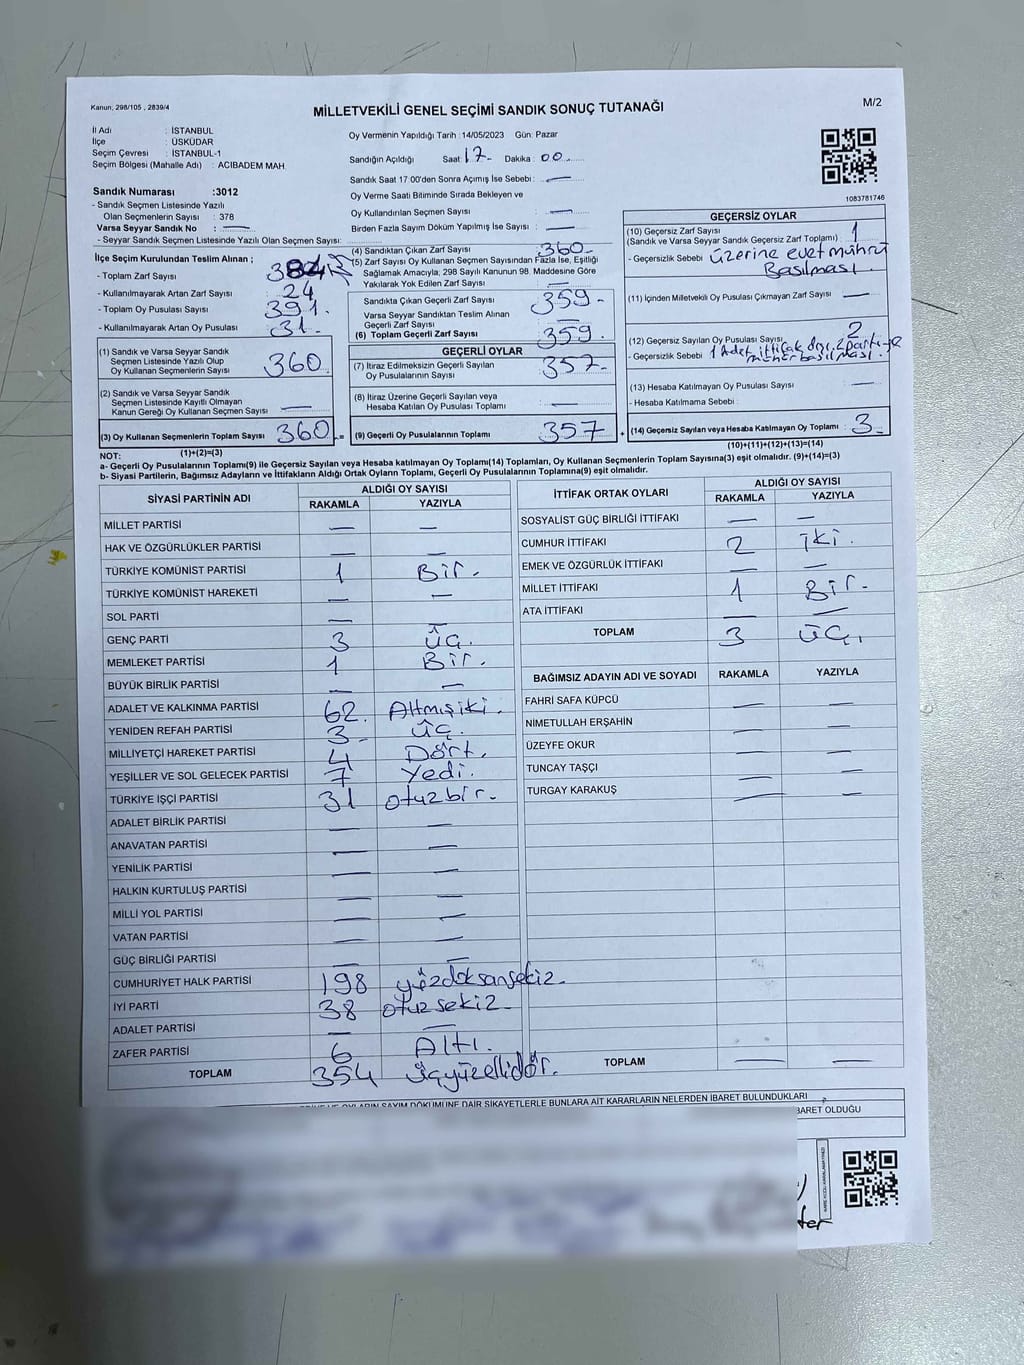 Kanun; 298/105 , 2839/4
MİLLETVEKİLİ GENEL SEÇİMİ SANDIK SONUÇ TUTANAĞI
M/2
İl Adı : İSTANBUL
İlçe : ÜSKÜDAR
Seçim Çevresi : İSTANBUL-1
Seçim Bölgesi (Mahalle Adı) : ACIBADEM MAH.
Sandık Numarası :3012
- Sandık Seçmen Listesinde Yazılı
Olan Seçmenlerin Sayısı : 378
Varsa Seyyar Sandık No : —
- Seyyar Sandık Seçmen Listesinde Yazılı Olan Seçmen Sayısı:
Oy Vermenin Yapıldığı Tarih : 14/05/2023 Gün: Pazar
Sandığın Açıldığı Saat: 17- Dakika : 00
Sandık Saat 17:00'den Sonra Açımış İse Sebebi: —
Oy Verme Saati Bitiminde Sırada Bekleyen ve
Oy Kullandırılan Seçmen Sayısı —
Birden Fazla Sayım Döküm Yapılmış İse Sayısı : —
1083781746
İlçe Seçim Kurulundan Teslim Alınan ;
- Toplam Zarf Sayısı : 384
- Kullanılmayarak Artan Zarf Sayısı : 24
- Toplam Oy Pusulası Sayısı : 391.
- Kullanılmayarak Artan Oy Pusulası : 31.
(1) Sandık ve Varsa Seyyar Sandık
Seçmen Listesinde Yazılı Olup
Oy Kullanan Seçmenlerin Sayısı 360
(2) Sandık ve Varsa Seyyar Sandık
Seçmen Listesinde Kayıtlı Olmayan
Kanun Gereği Oy Kullanan Seçmen Sayısı —
(3) Oy Kullanan Seçmenlerin Toplam Sayısı 360 =
(4) Sandıktan Çıkan Zarf Sayısı : 360-
(5) Zarf Sayısı Oy Kullanan Seçmen Sayısından Fazla İse, Eşitliği
Sağlamak Amacıyla; 298 Sayılı Kanunun 98. Maddesine Göre
Yakılarak Yok Edilen Zarf Sayısı : —
Sandıkta Çıkan Geçerli Zarf Sayısı : 359-
Varsa Seyyar Sandıktan Teslim Alınan
Geçerli Zarf Sayısı : —
(6) Toplam Geçerli Zarf Sayısı : 359.
GEÇERLİ OYLAR
(7) İtiraz Edilmeksizin Geçerli Sayılan
Oy Pusulalarının Sayısı : 357-
(8) İtiraz Üzerine Geçerli Sayılan veya
Hesaba Katılan Oy Pusulası Toplamı : —
(9) Geçerli Oy Pusulalarının Toplamı 357 +
GEÇERSİZ OYLAR
(10) Geçersiz Zarf Sayısı : 1
(Sandık ve Varsa Seyyar Sandık Geçersiz Zarf Toplamı)
- Geçersizlik Sebebi üzerine evet mührü
Basılması.
(11) İçinden Milletvekili Oy Pusulası Çıkmayan Zarf Sayısı : —
(12) Geçersiz Sayılan Oy Pusulası Sayısı : 2
- Geçersizlik Sebebi : 1 Adet ittifak dışı, 2 partiye
mühür basılması.
(13) Hesaba Katılmayan Oy Pusulası Sayısı : —
- Hesaba Katılmama Sebebi :
(14) Geçersiz Sayılan veya Hesaba Katılmayan Oy Toplamı : 3-
NOT: (1)+(2)=(3)
(10)+(11)+(12)+(13)=(14)
a- Geçerli Oy Pusulalarının Toplamı(9) ile Geçersiz Sayılan veya Hesaba katılmayan Oy Toplamı(14) Toplamları, Oy Kullanan Seçmenlerin Toplam Sayısına(3) eşit olmalıdır. (9)+(14)=(3)
b- Siyasi Partilerin, Bağımsız Adayların ve İttifakların Aldığı Ortak Oyların Toplamı, Geçerli Oy Pusulalarının Toplamına(9) eşit olmalıdır.
SİYASİ PARTİNİN ADI ALDIĞI OY SAYISI
RAKAMLA YAZIYLA
MİLLET PARTİSİ — —
HAK VE ÖZGÜRLÜKLER PARTİSİ — —
TÜRKİYE KOMÜNİST PARTİSİ 1 Bir.
TÜRKİYE KOMÜNİST HAREKETİ — —
SOL PARTİ — —
GENÇ PARTİ 3 üç.
MEMLEKET PARTİSİ 1 Bir.
BÜYÜK BİRLİK PARTİSİ — —
ADALET VE KALKINMA PARTİSİ 62. Altmışiki.
YENİDEN REFAH PARTİSİ 3- üç.
MİLLİYETÇİ HAREKET PARTİSİ 4 Dört.
YEŞİLLER VE SOL GELECEK PARTİSİ 7 yedi.
TÜRKİYE İŞÇİ PARTİSİ 31 otuzbir.
ADALET BİRLİK PARTİSİ — —
ANAVATAN PARTİSİ — —
YENİLİK PARTİSİ — —
HALKIN KURTULUŞ PARTİSİ — —
MİLLİ YOL PARTİSİ — —
VATAN PARTİSİ — —
GÜÇ BİRLİĞİ PARTİSİ — —
CUMHURİYET HALK PARTİSİ 198 yüzdoksansekiz.
İYİ PARTİ 38 otuzsekiz
ADALET PARTİSİ — —
ZAFER PARTİSİ 6 Altı.
TOPLAM 354 üçyüzellidör.
İTTİFAK ORTAK OYLARI ALDIĞI OY SAYISI
RAKAMLA YAZIYLA
SOSYALİST GÜÇ BİRLİĞİ İTTİFAKI — —
CUMHUR İTTİFAKI 2 iki.
EMEK VE ÖZGÜRLÜK İTTİFAKI — —
MİLLET İTTİFAKI 1 Bir.
ATA İTTİFAKI — —
TOPLAM 3 üç.
BAĞIMSIZ ADAYIN ADI VE SOYADI RAKAMLA YAZIYLA
FAHRİ SAFA KÜPCÜ — —
NİMETULLAH ERŞAHİN — —
ÜZEYFE OKUR — —
TUNCAY TAŞÇI — —
TURGAY KARAKUŞ — —
TOPLAM — —
VE OYLARIN SAYIM DÖKÜMÜNE DAİR ŞİKAYETLERLE BUNLARA AİT KARARLARIN NELERDEN İBARET BULUNDUKLARI
BARET OLDUĞU